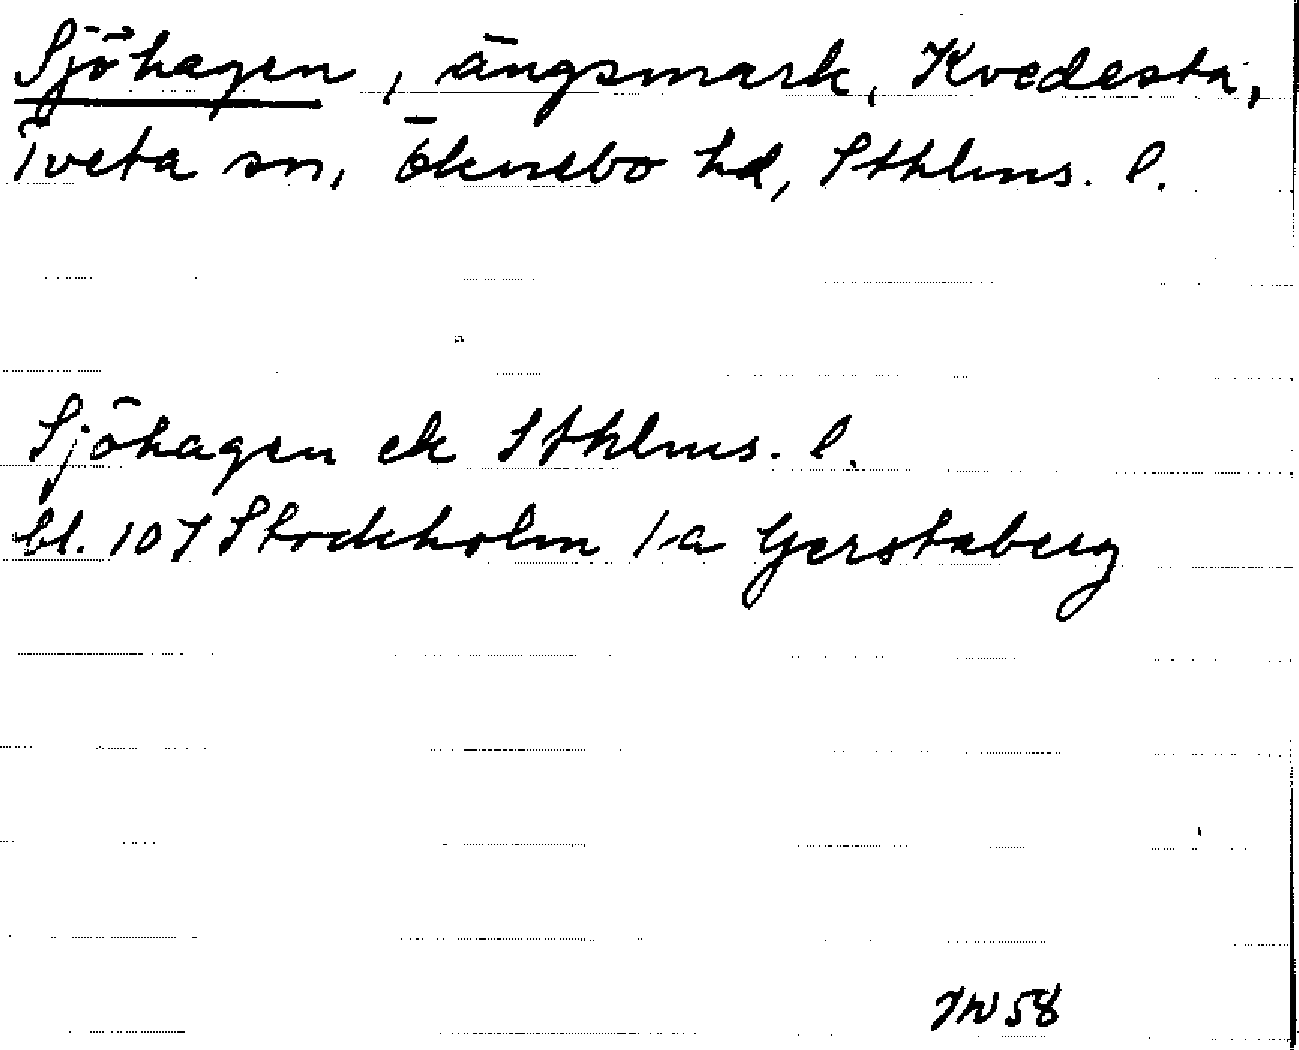 Sjöhagen, ängsmark, Kvedesta,
Tveta sn, Öknebo hd, Sthlms. l.
Sjöhagen ek Sthlms. l.
bl. 107 Stockholm 1-a Gerstaberg
58